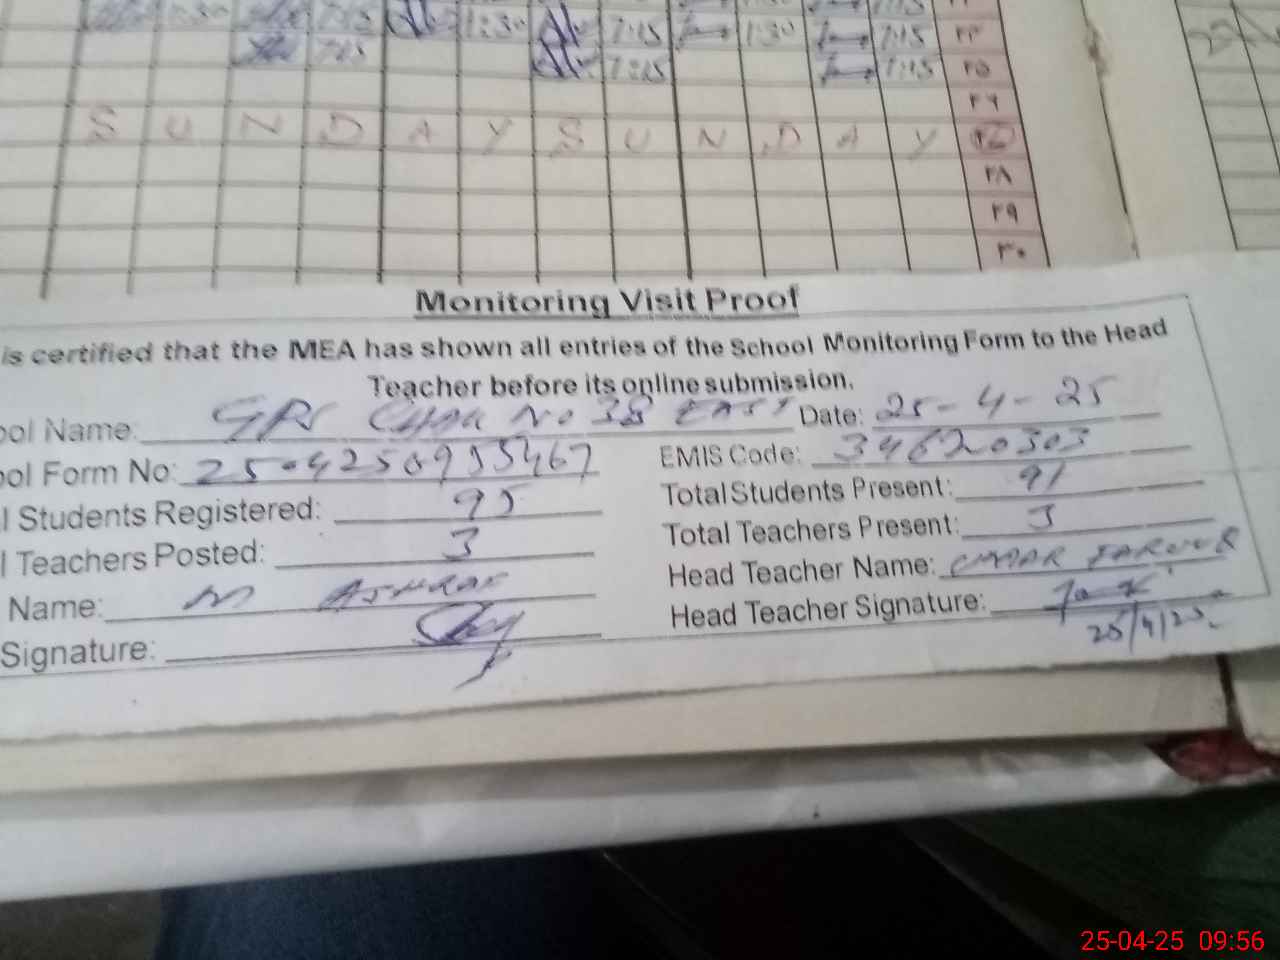 1:30 7:15 1:30 7:15 1:30 7:15 ۲۳
7:15 7:15 7:15 ۲۵
۲۴
S U N D A Y S U N D A Y
۲۸
۲۹
۳۰
Monitoring Visit Proof
is certified that the MEA has shown all entries of the School Monitoring Form to the Head
Teacher before its online submission.
ool Name: GPS Chak No 38 EAST Date: 25-4-25
ool Form No: EMIS Code: 34620303
l Students Registered: 95 Total Students Present: 91
l Teachers Posted: 3 Total Teachers Present: 3
Name: M ASHRAF Head Teacher Name: UMAR FAROOQ
Signature: Head Teacher Signature:
25/4/25
25-04-25 09:56